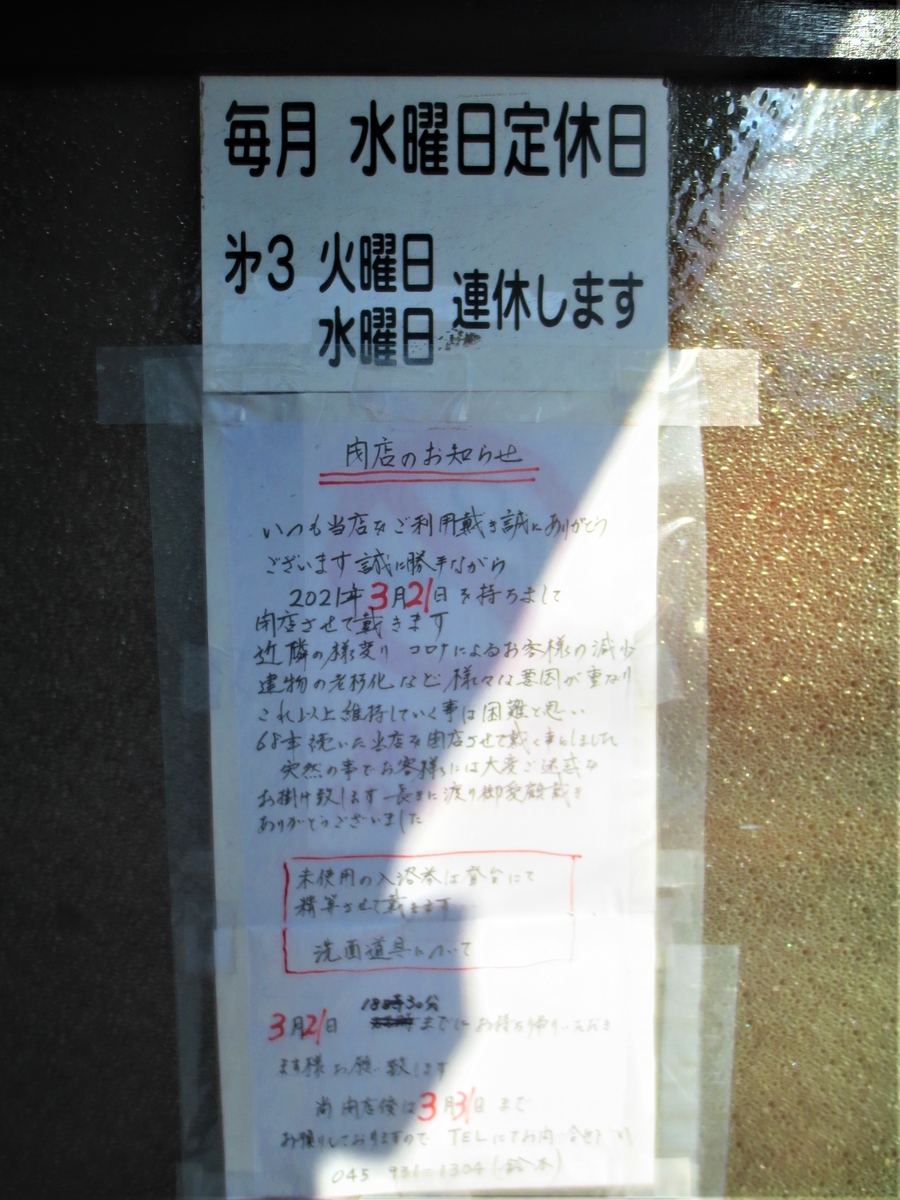 毎月 水曜日定休日
第3 火曜日
水曜日 連休します
閉店のお知らせ
いつも当店をご利用戴き誠にありがとう
ございます 誠に勝手ながら
2021年3月21日 を持ちまして
閉店させて戴きます
近隣の様変り コロナによるお客様の減少
建物の老朽化など様々な要因が重なり
これ以上維持していく事は困難と思い
68年続いた当店を閉店させて戴く事にしました
突然の事でお客様には大変ご迷惑を
お掛け致します 長きに渡り御愛顧戴き
ありがとうございました
未使用の入浴券は番台にて
精算させて戴きます
洗面道具について
3月21日 18時30分
までに お持ち帰りいただき
ます様 お願い致します
尚 閉店後は3月31日 まで
お預りしておりますので TELにてお問い合せ下さい
045 931-1304 (鈴木)